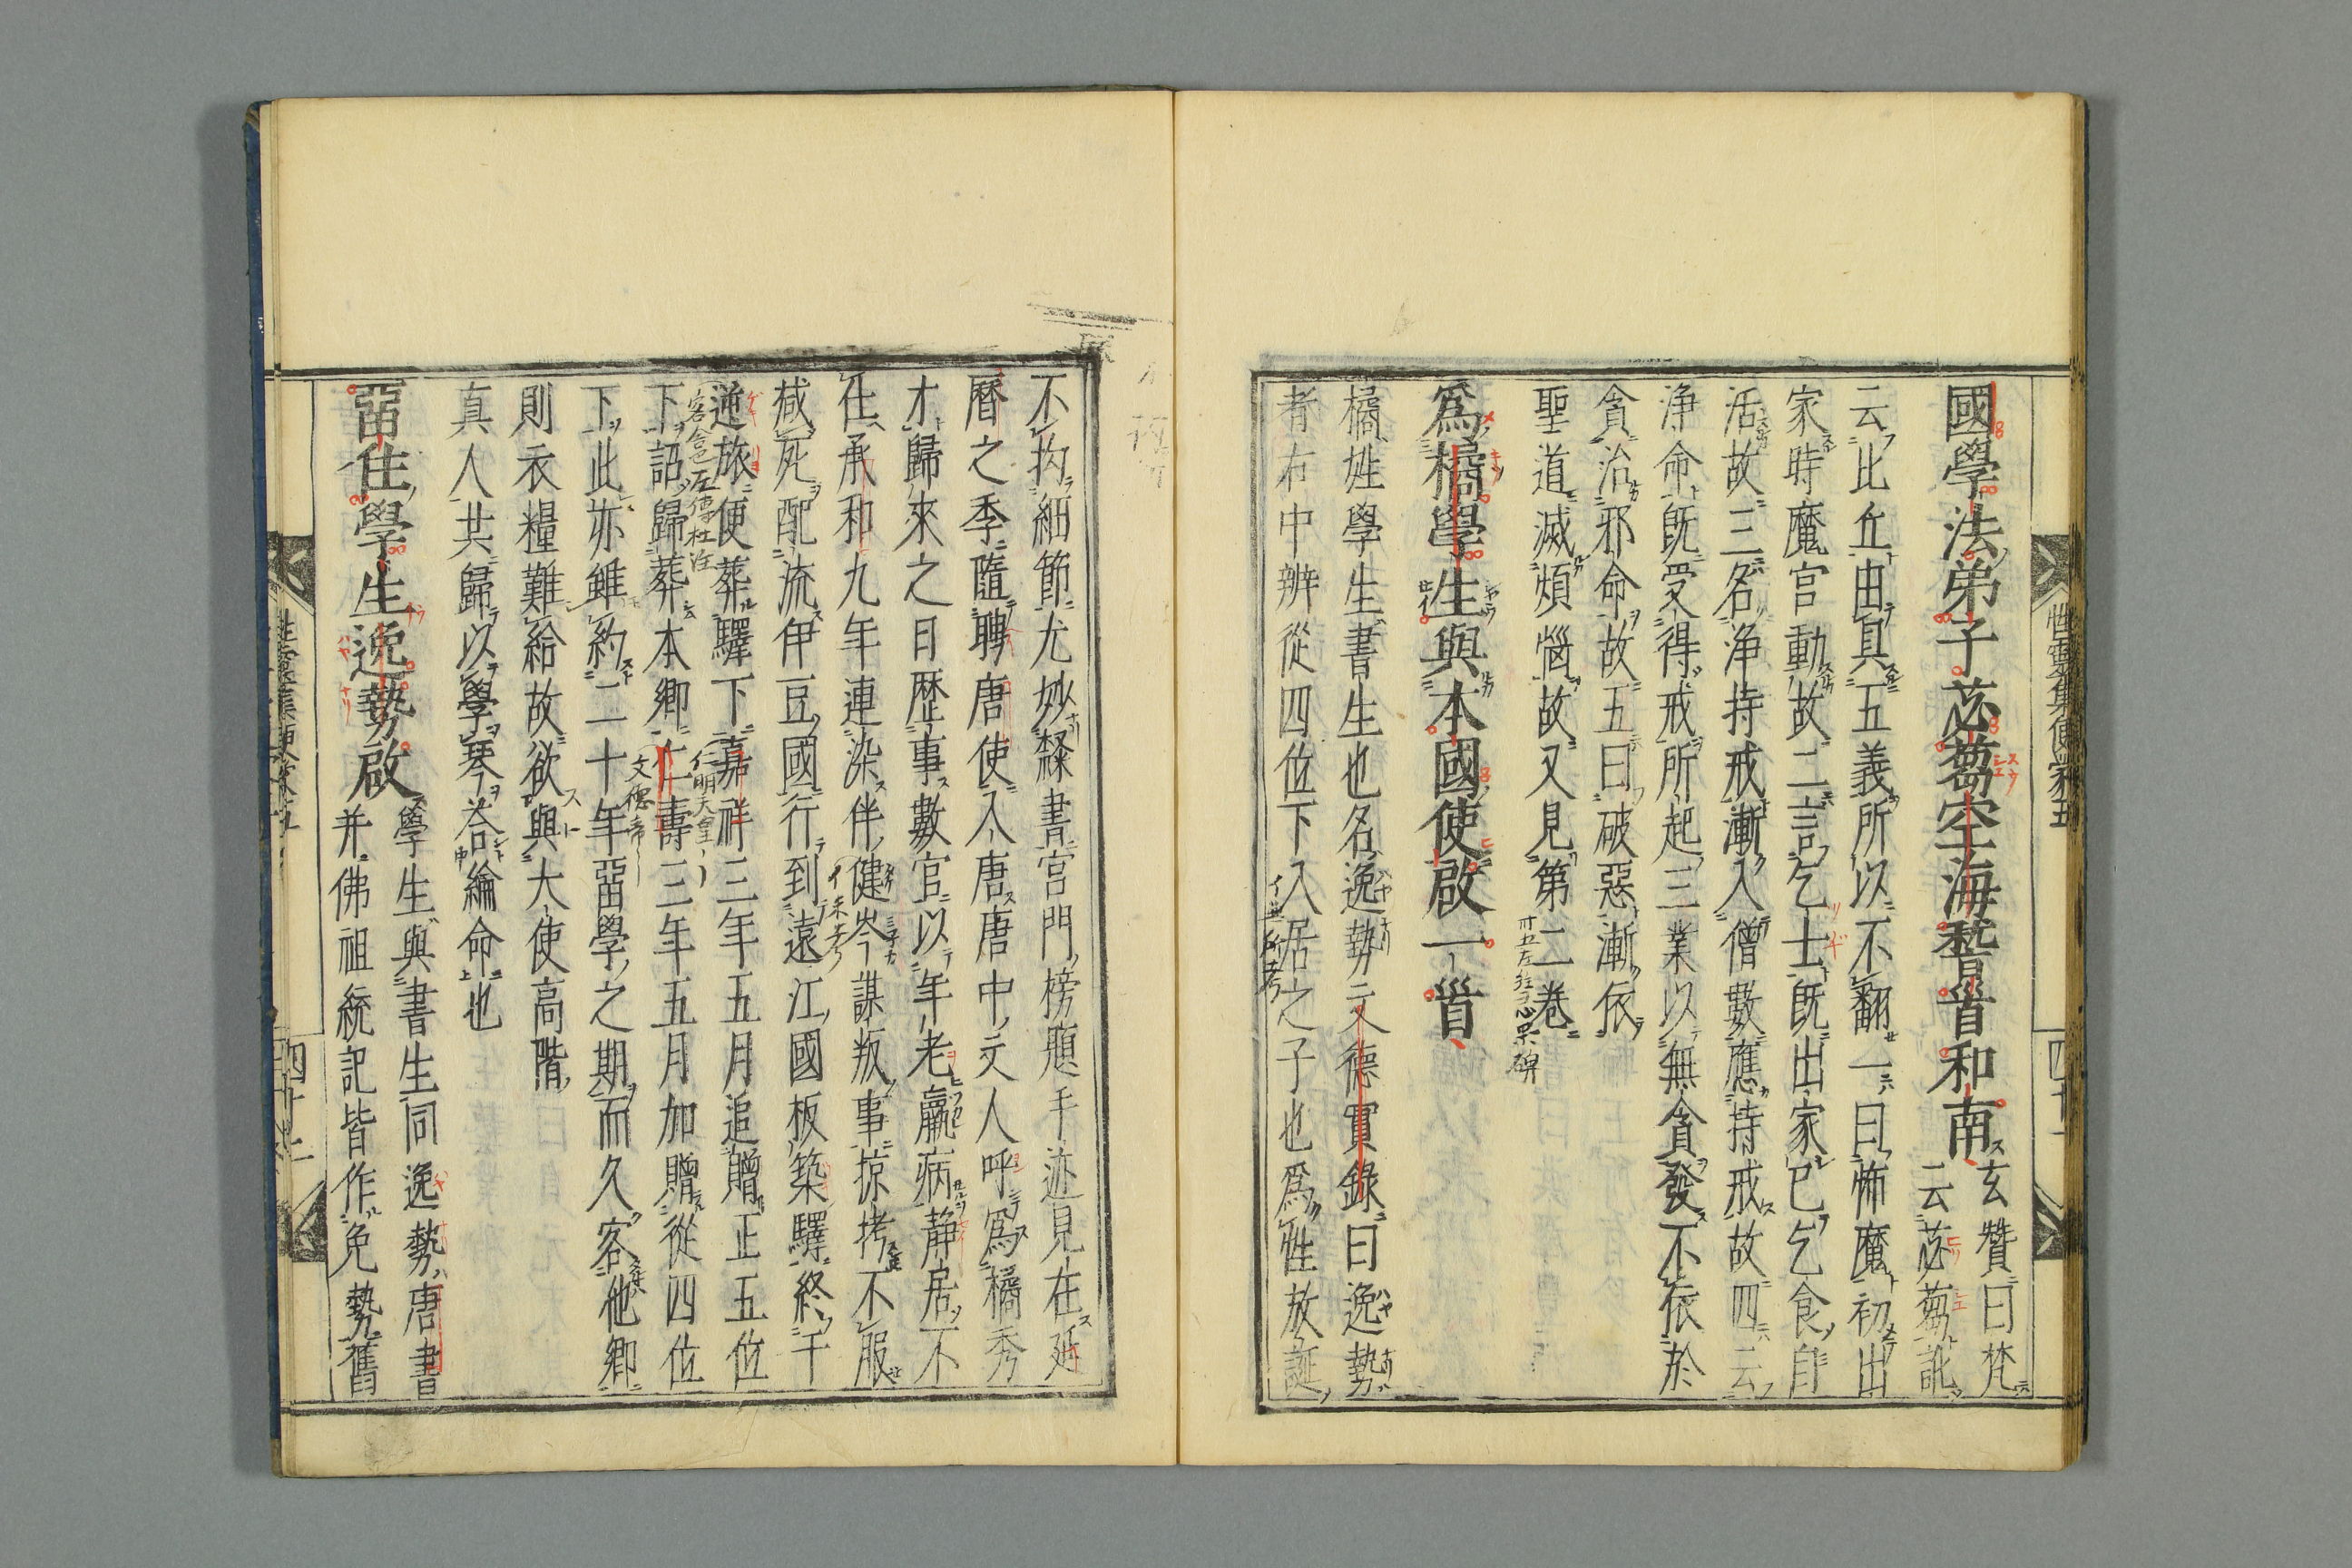 國學法弟子苾蒭空海稽首和南玄贊曰梵
云苾蒭訛
云比丘由具五義所以不翻一曰怖魔初出
家時魔宮動故二言乞士既出家已乞食自
活故三名淨持戒漸入僧數應持戒故四云
淨命既受得戒所起三業以無貪發不依於
貪治邪命故五曰破惡漸依
聖道滅煩惱故又見第二卷
爲橘學生與本國使啟一首
橘姓學生書生也名逸勢文德實錄曰逸勢
者右中辨從四位下入居之子也爲性放誕
不拘細節尤妙隸書宮門榜題手迹見在延
曆之季隨聘唐使入唐唐中文人呼爲橘秀
才歸來之日歷事數官以年老羸病靜居不
仕承和九年連染伴健岑謀叛事掠拷不服
減死配流伊豆國行到遠江國板築驛終于
逆旅便葬驛下嘉祥三年五月追贈正五位
客舍左傳杜注
仁明天皇
下詔歸葬本鄉仁壽三年五月加贈從四位
文德帝
下此亦雖約二十年畱學之期而久客他鄉
則衣糧難給故欲與大使高階
真人共歸以學琴答綸命也
畱住學生逸勢啟
學生與書生同逸勢唐書
并佛祖統記皆作免勢舊